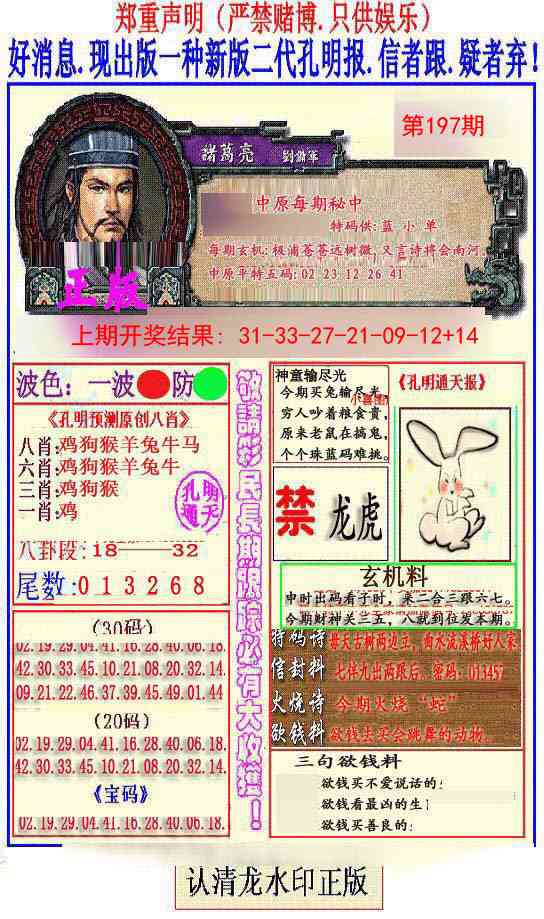 郑重声明（严禁赌博.只供娱乐）
好消息.现出版一种新版二代孔明报.信者跟.疑者弃!
第197期
諸葛亮
劉備軍
中原每期秘中
特码供:蓝 小 单
每期玄机:极浦苍苍远树微,又言诗将会南河.
中原平特五码:02 23 12 26 41
正版
上期开奖结果: 31-33-27-21-09-12+14
波色：一波 防
《孔明预测原创八肖》
八肖:鸡狗猴羊兔牛马
六肖:鸡狗猴羊兔牛
三肖:鸡狗猴
一肖:鸡
孔明通天
八卦段:18——32
尾数:013268
(30码)
02.19.29.04.41.16.28.40.06.18.
42.30.33.45.10.21.08.20.32.14.
09.21.22.46.37.39.45.49.01.44
(20码)
02.19.29.04.41.16.28.40.06.18.
42.30.33.45.10.21.08.20.32.14.
《宝码》
02.19.29.04.41.16.28.40.06.18.
敬請彩民長期跟踪必有大收獲！
神童输尽光
今期买兔输尽光,
穷人吵着粮食贵,
原来老鼠在搞鬼,
个个珠蓝码难挑。
《孔明通天报》
禁 龙虎
玄机料
申时出码看子时，来二合三跟六七。
今期财神关三五，八就到位发本期。
特码诗 每天古树两边立，曲水流溪桥好人家
信封料 七伴九出两跟后. 密码: 013457
火烧诗 今期火烧“蛇”
欲钱料 欲钱去买会跳舞的动物.
三句欲钱料
欲钱买不爱说话的:
欲钱看最凶的生
欲钱买善良的:
认清龙水印正版